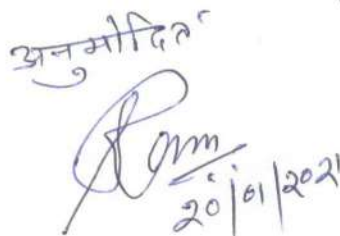 अनुमोदित
20/01/2021